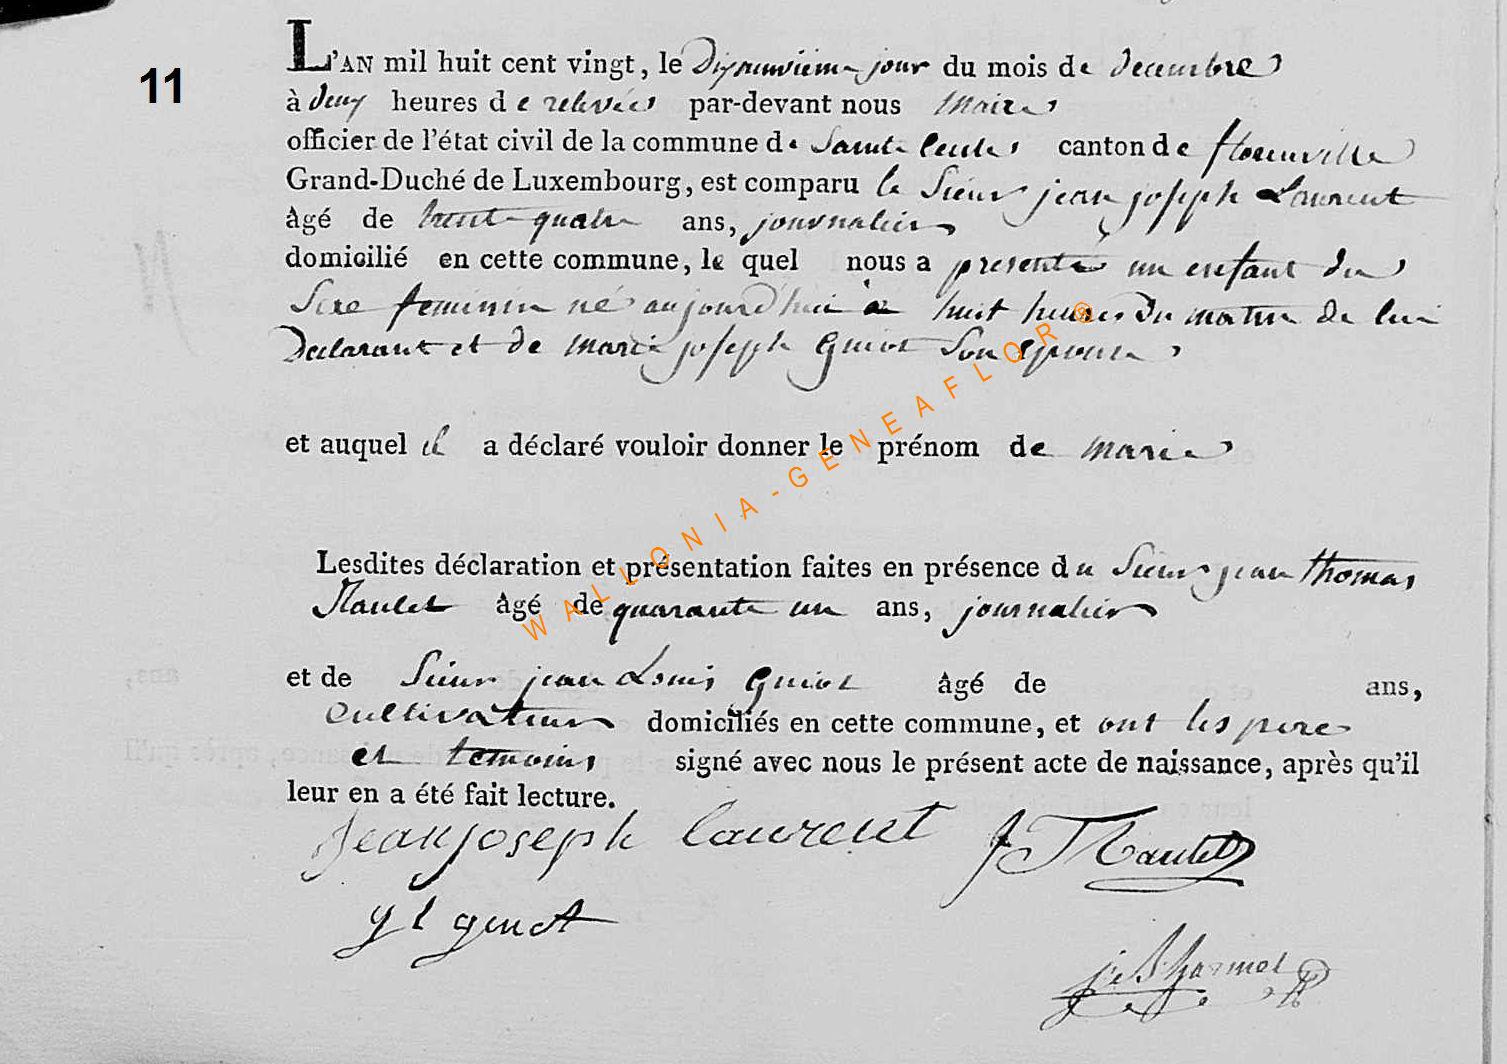 11
L'AN mil huit cent vingt, le Dixneuvième jour du mois de decembre
à deux heures de relevée par-devant nous Maire
officier de l'état civil de la commune de Sainte Cecile canton de florenville
Grand-Duché de Luxembourg, est comparu le Sieur jean joseph Laurent
âgé de trente quatre ans, journalier
domicilié en cette commune, le quel nous a presenté un enfant du
Sexe feminin né aujourd'hui à huit heures Du matin de lui
Declarant et de marie joseph Guiot Son epouse
et auquel il a déclaré vouloir donner le prénom de marie
Lesdites déclaration et présentation faites en présence du Sieur jean thomas
âgé de quarante un ans, journalier
et de Sieur jean Louis Guiot âgé de ans,
Cultivateur domiciliés en cette commune, et ont les pere
et temoins signé avec nous le présent acte de naissance, après qu'il
leur en a été fait lecture.
jean joseph laurent
WALLONIA-GENEAFLOR®